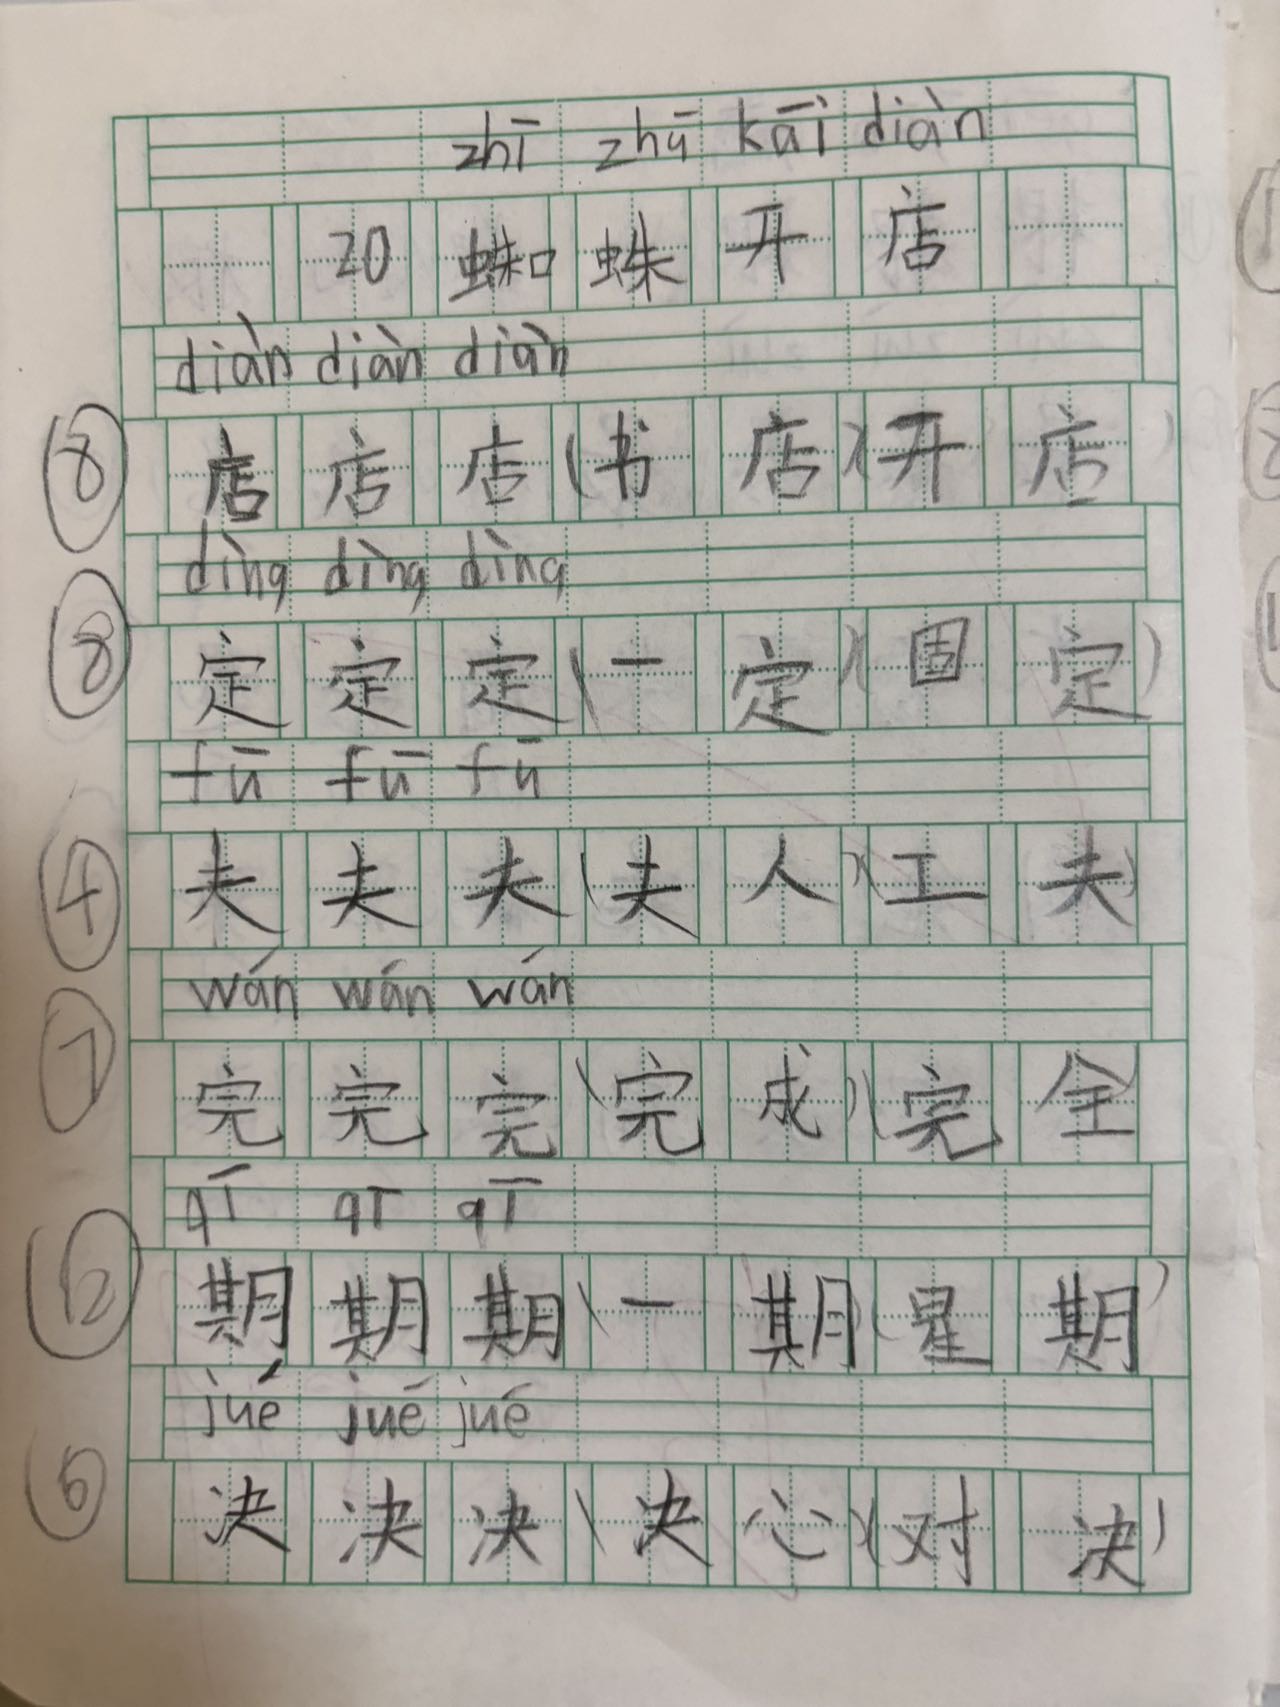 zhī zhū kāi diàn
20 蜘蛛开店
diàn diàn diàn
⑧ 店店店(书店)(开店)
dìng dìng dìng
⑧ 定定定(一定)(固定)
fū fū fū
④ 夫夫夫(夫人)(工夫)
wán wán wán
⑦ 完完完(完成)(完全
qī qī qī
⑫ 期期期(一期(星期)
jué jué jué
⑥ 决决决(决心)(对决)